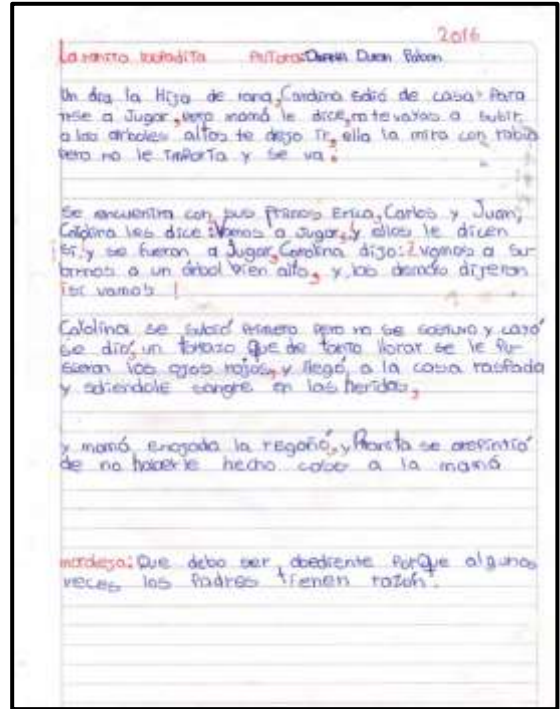 2016
La ranita raspadita Autora: Duran Pabon
Un día la Hija de rana, Carolina salió de casa Para
irse a Jugar, pero mamá le dice, no te vayas a subir
a los arboles altos te dejo ir, ella la mira con rabia
pero no le Importa y se va.
Se encuentra con sus Primos Erica, Carlos y Juan,
Carolina les dice: Vamos a Jugar, y ellos le dicen
¡Si! y se fueron a Jugar, Carolina dijo: ¿vamos a su-
birnos a un árbol bien alto, y los demás dijeron
¡si vamos!
Carolina se subió Primero pero no se sostuvo y cayó
se dió, un totazo que de tanto llorar se le Pu-
sieron los ojos rojos, y llegó, a la casa raspada
y saliendole sangre en las heridas,
y mamá enojada la regañó, y Ranita se arepintió
de no haberle hecho caso a la mamá
moraleja: Que debo ser obediente Porque algunas
veces los Padres tienen razón.